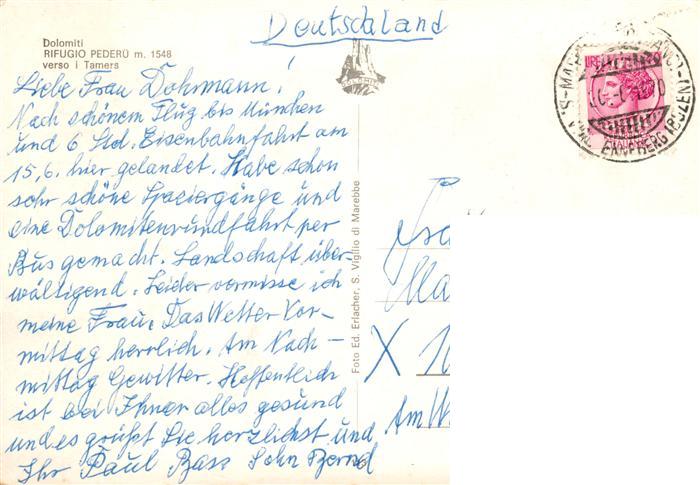 Deutschaland
Dolomiti
RIFUGIO PEDERÜ m. 1548
verso i Tamers
Liebe Frau Dohrmann!
Nach schönem Flug bis München
und 6 Std. Eisenbahnfahrt am
15.6. hier gelandet. Habe schon
sehr schöne Spaziergänge und
eine Dolomitenrundfahrt per
Bus gemacht. Landschaft über-
wältigend. Leider vermisse ich
meine Frau. Das Wetter Vor-
mittag herrlich. Am Nach-
mittag Gewitter. Hoffentlich
ist bei Ihnen alles gesund
und es grüßt Sie herzlichst und
Ihr Paul Bass Sohn Bernd
Foto Ed. Erlacher, S. Vigilio di Marebbe
LIRE
ENNEBERG (BOZEN)
X
Am W